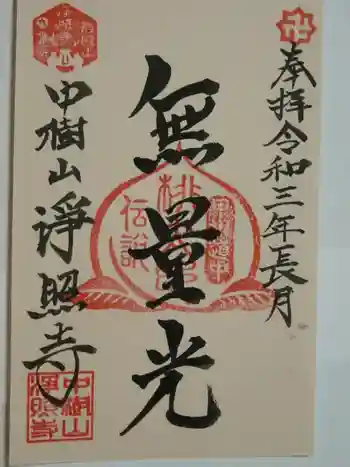 奉拝令和三年長月
無量光
桃
伝説
中樹山
淨照寺
中樹山
淨照寺